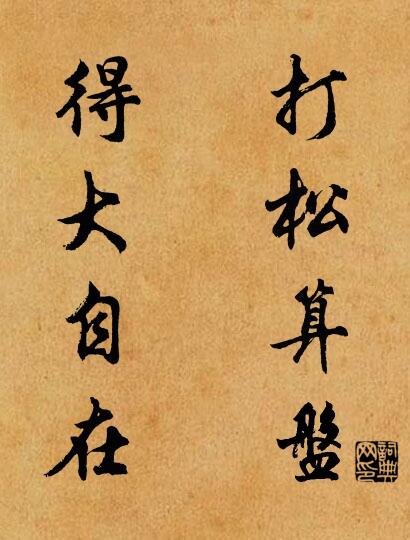 打松算盤
得大自在
詞典網印